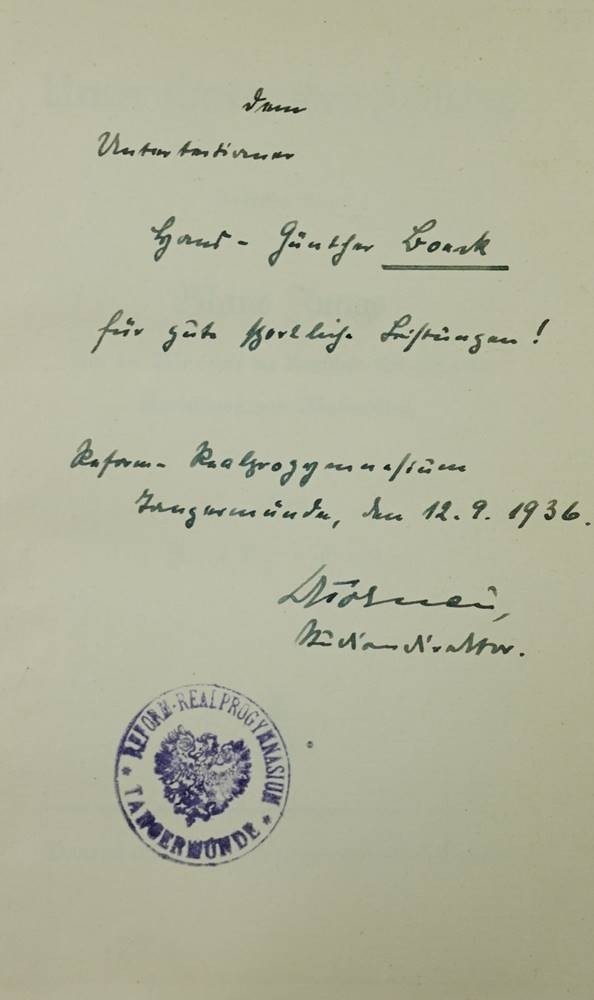 Dem
Untertertianer
Hans-Günther Boack
für gute sportliche Leistungen!
Reform-Realprogymnasium
Tangermünde, den 12.9.1936.
Studiendirektor.
REFORM-REALPROGYMNASIUM
* TANGERMÜNDE *